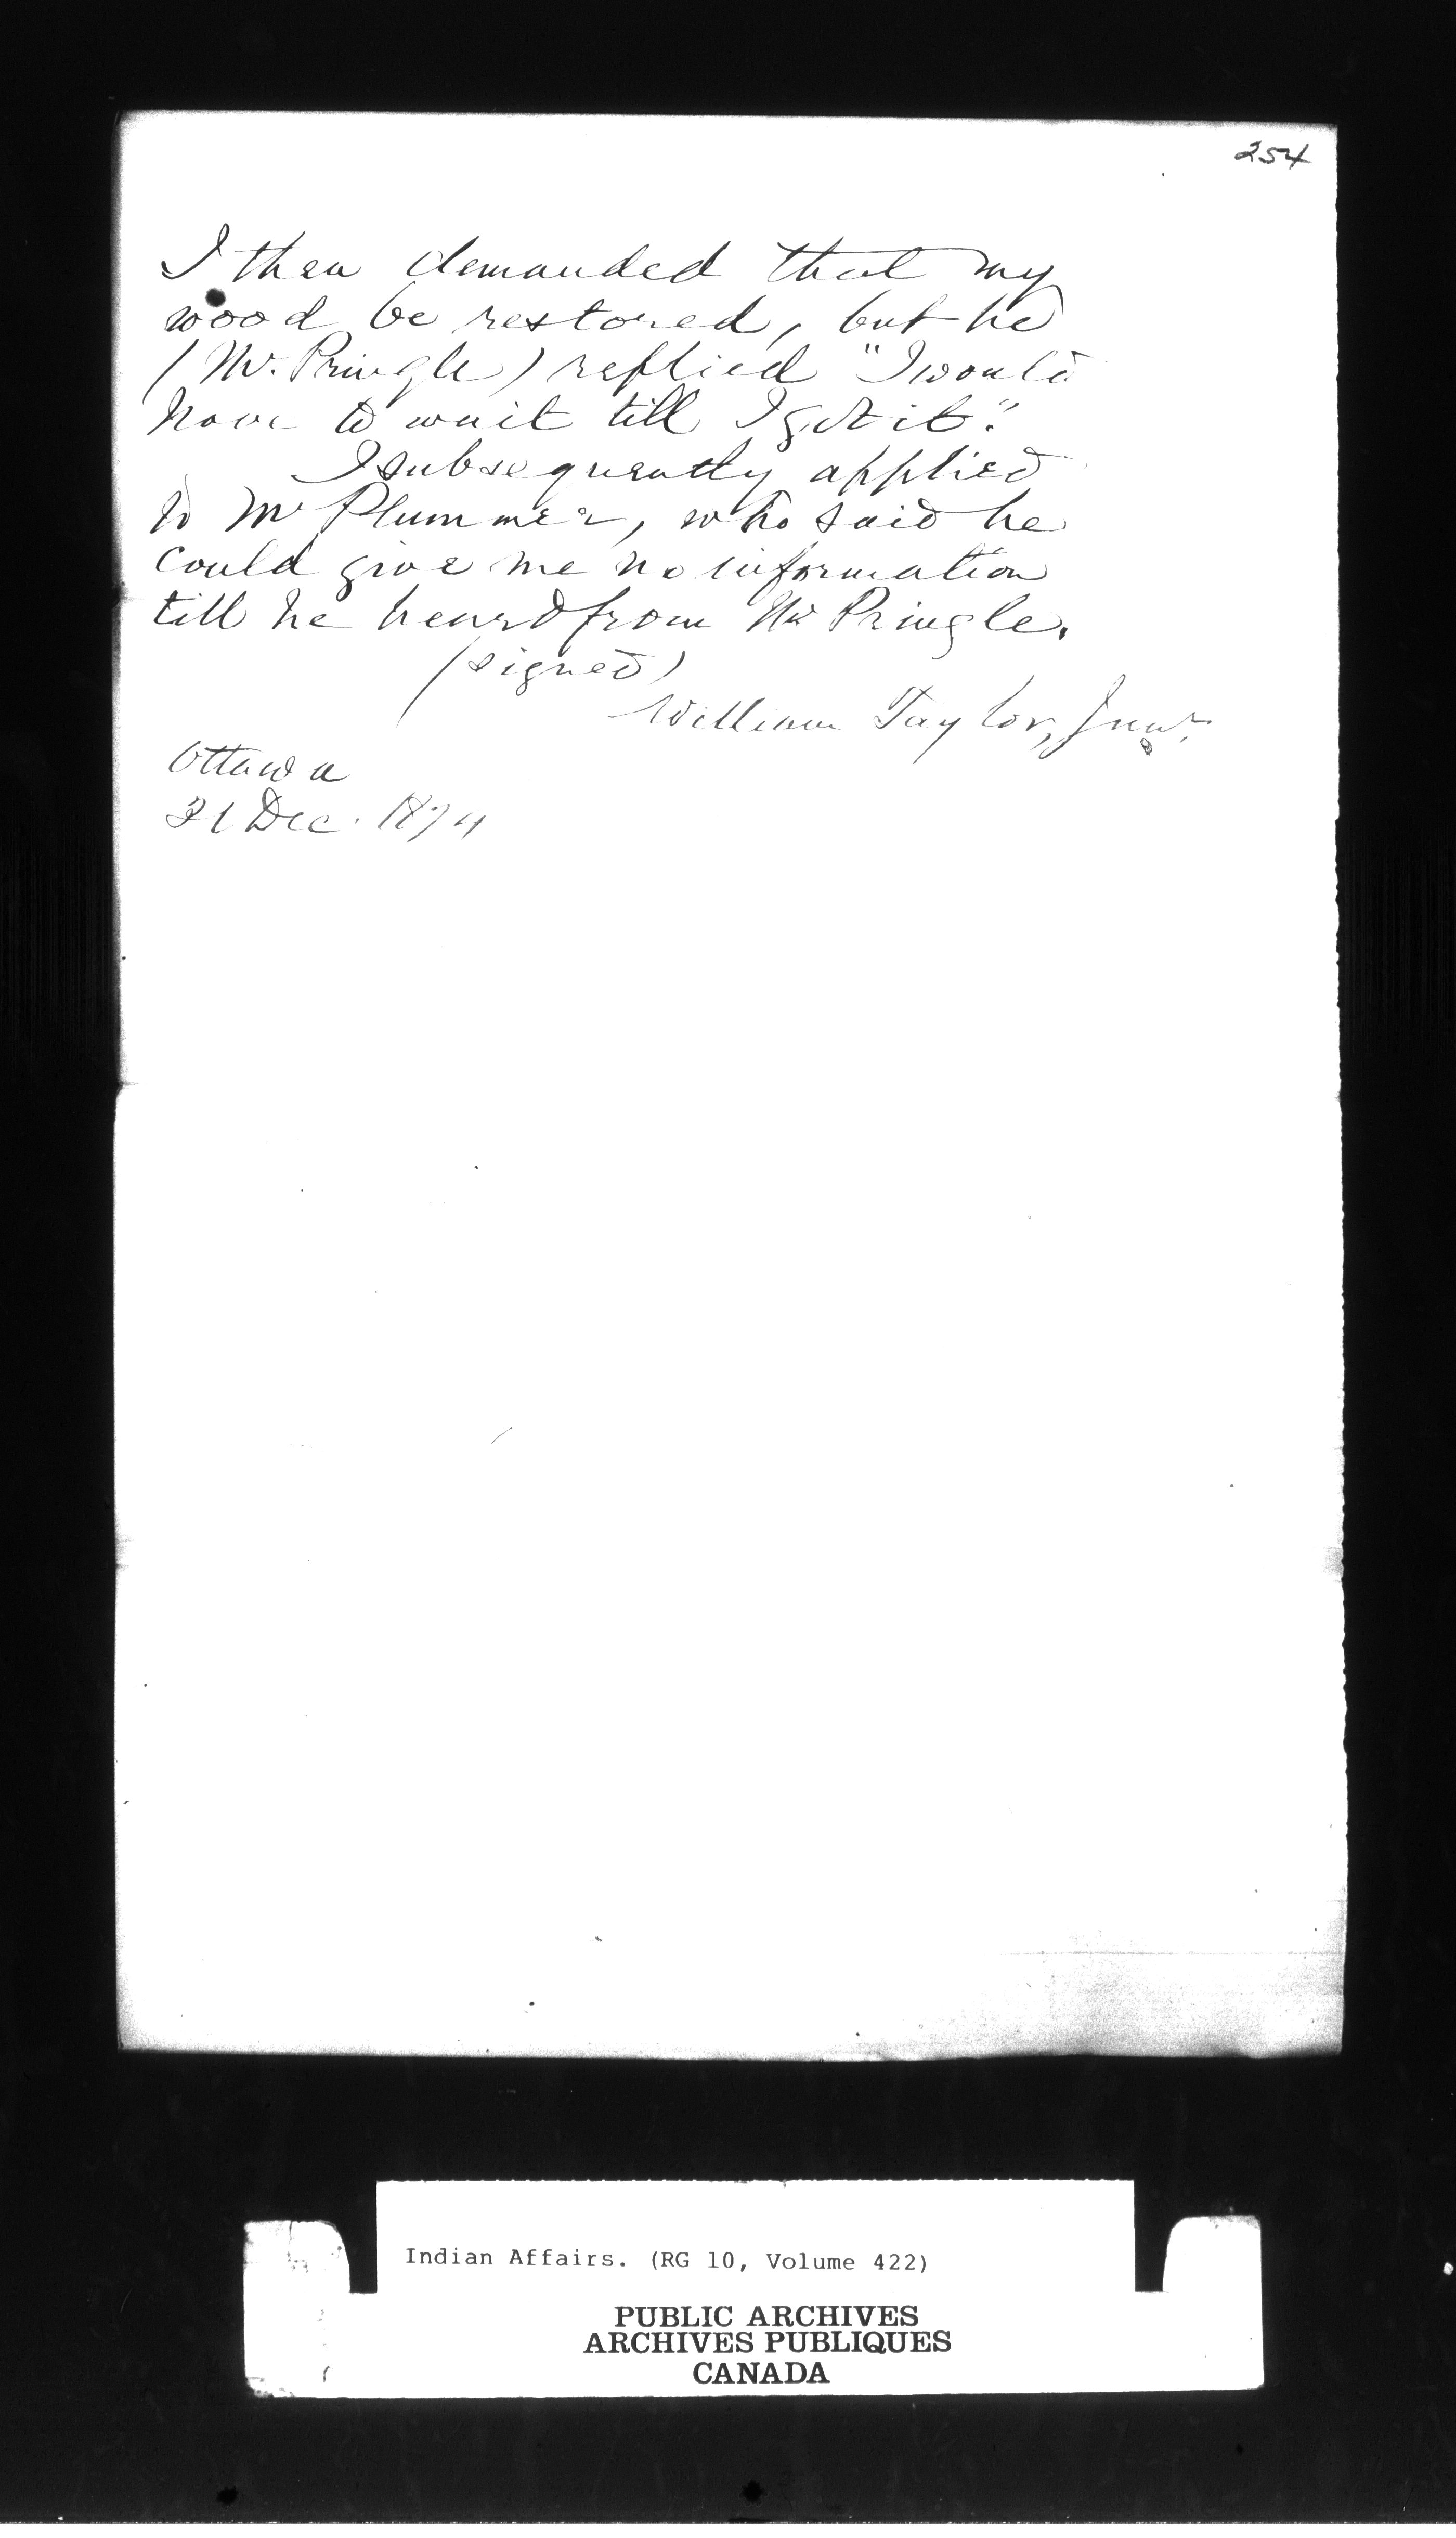 254
I then demanded that my
wood be restored, but he
(Mr. Pringle) replied "I would
have to wait till I got it."
I subsequently applied
to Mr Plummer, who said he
could give me no information
till he heard from Mr Pringle.
(signed)
William Taylor, Junr.
Ottawa
31 Dec. 1874
Indian Affairs. (RG 10, Volume 422)
PUBLIC ARCHIVES
ARCHIVES PUBLIQUES
CANADA